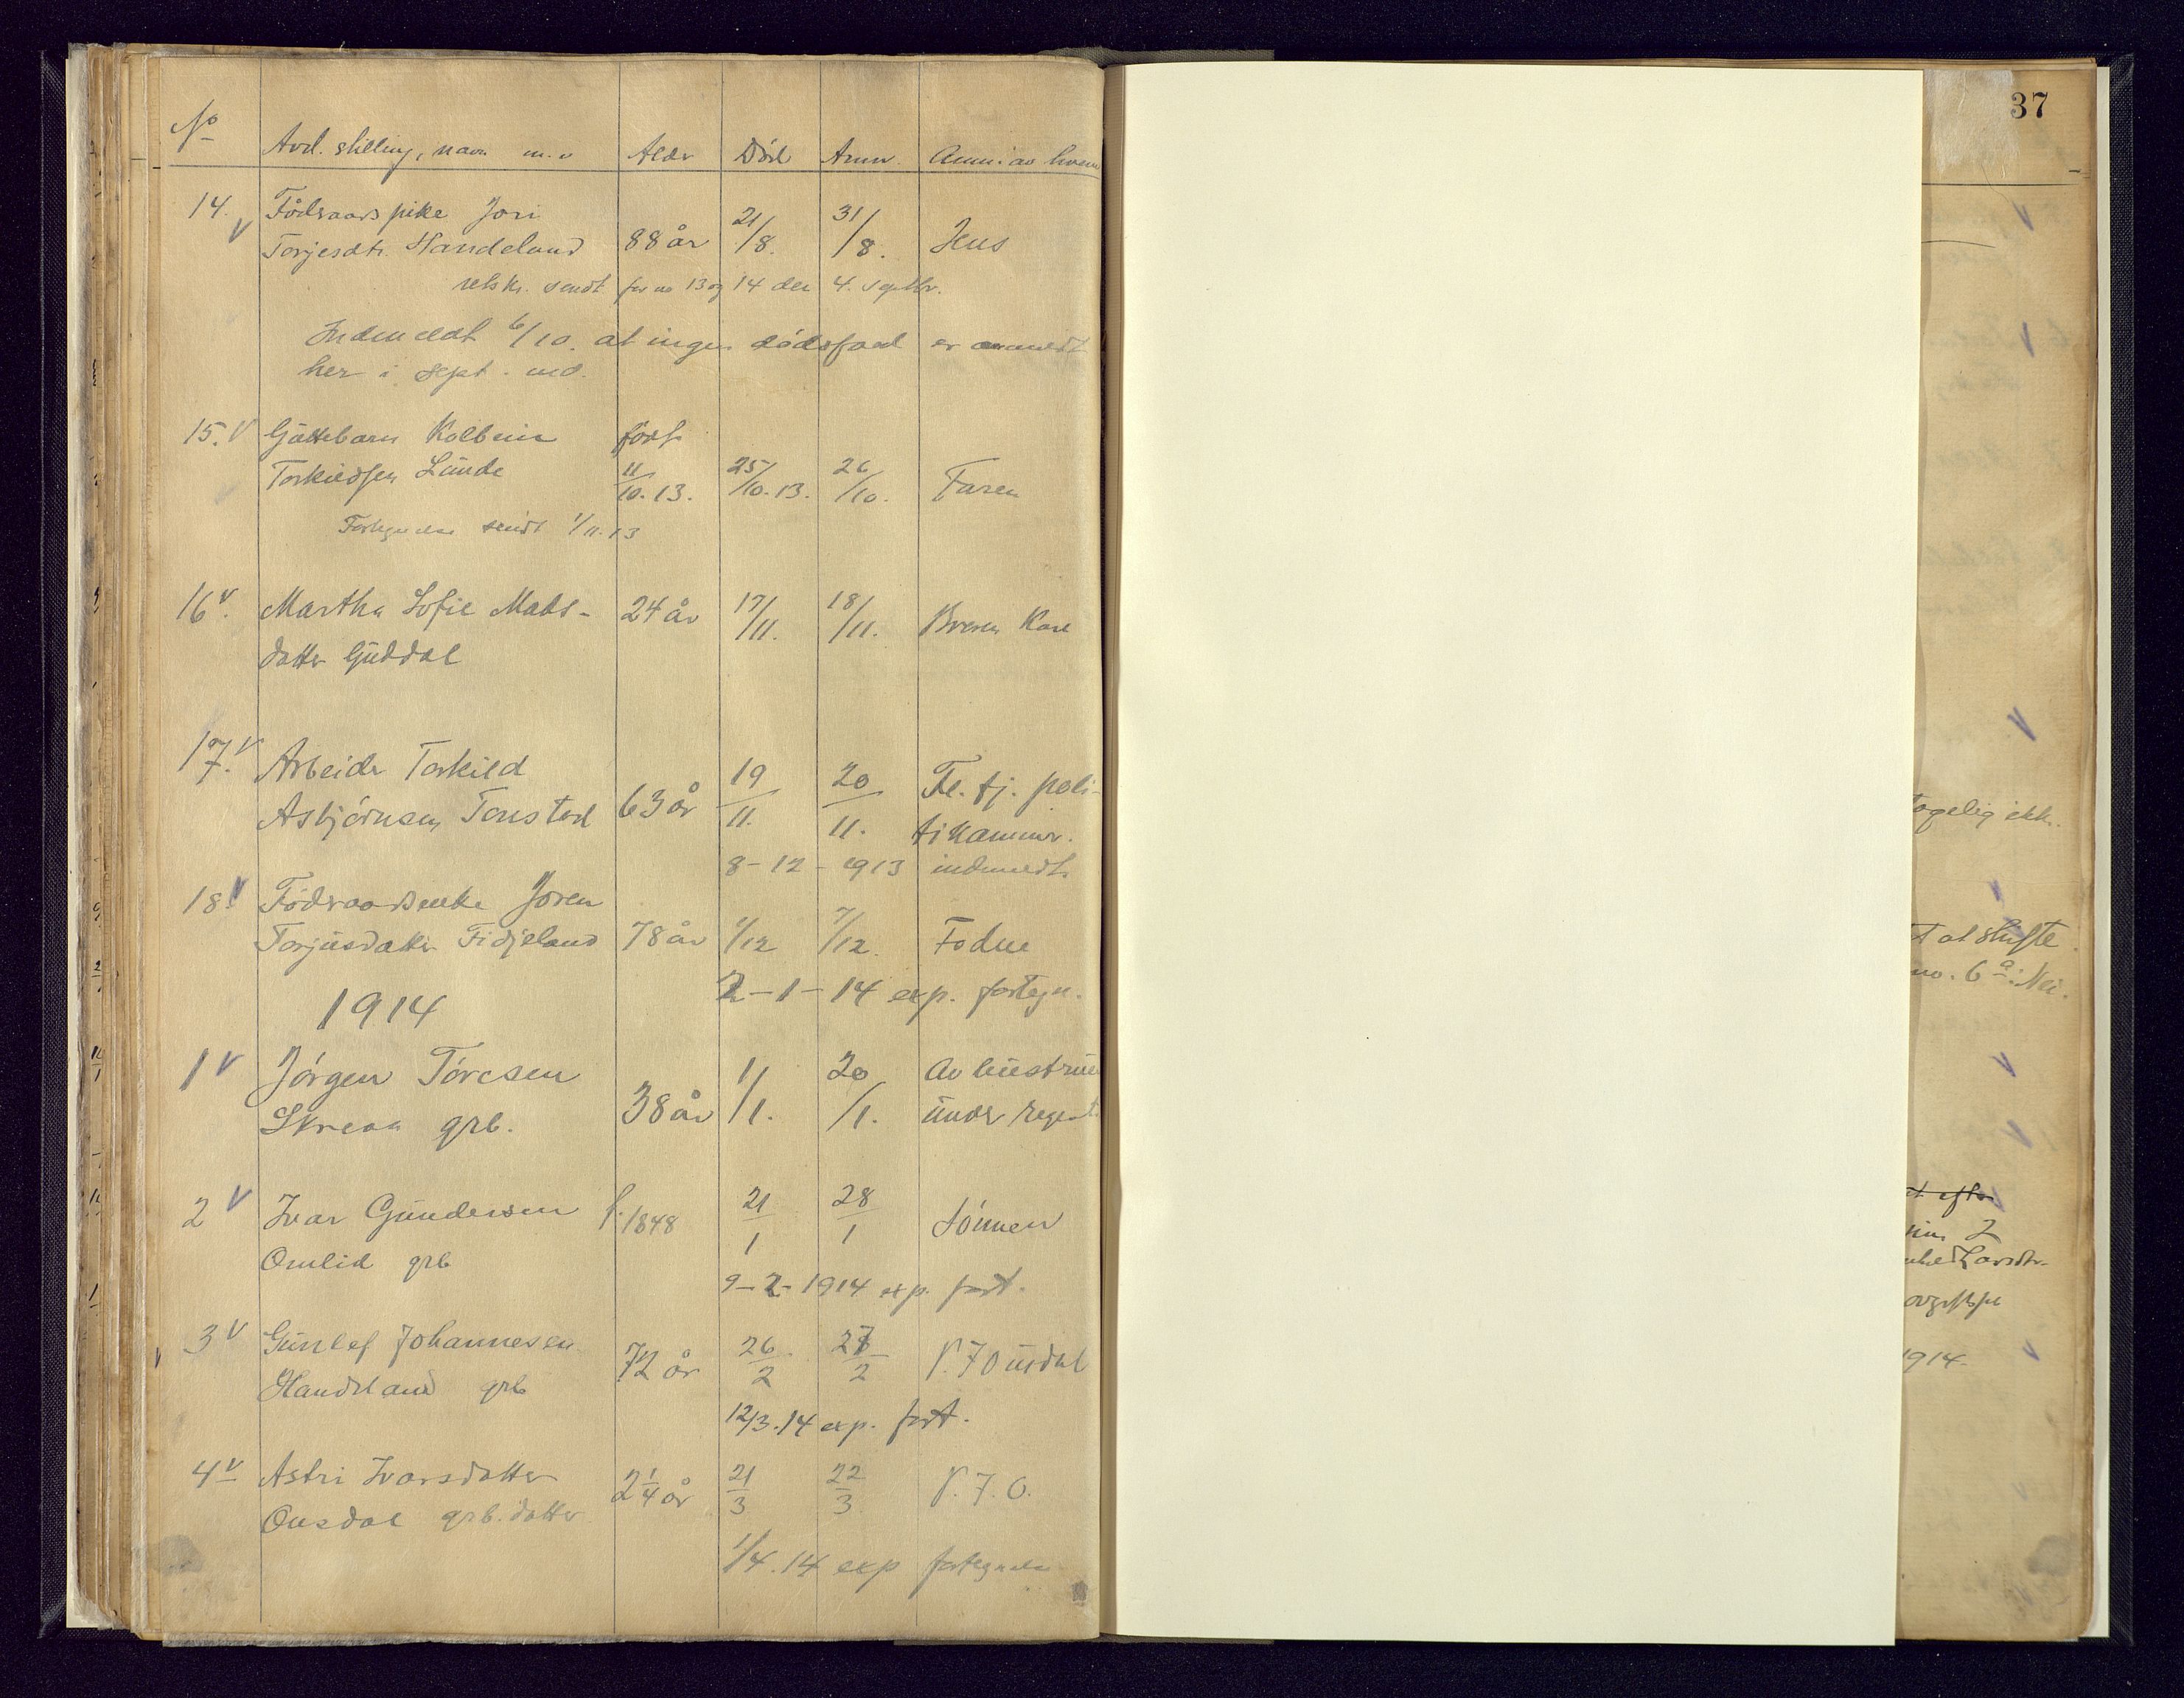 No Avd. stilling, navn m.v Alder Död Anm. Anm. av hvem
14. Födraads pike Jori
Torjesdtr. Handeland 88 år 21/8. 31/8. Jens
sendt for no 13 og 14 den 4. septbr.
Indmeldt 6/10. at ingen dödsfald er anmeldt
her i sept. md.
15. Gjættebarn Kolbein födt
Torkildsen Lunde 11/10. 13. 25/10. 13. 26/10. Faren
Fortegnelse sendt 1/11. 13
16. Martha Sofie Mads-
datter Guddal 24 år 17/11. 18/11. Broren Karl
17. Arbeider Torkild
Asbjörnsen Tonstad 63 år 19/11. 20/11. Fl. fj. poli-
tikammer.
8-12-1913 indmeldt
18. Födraadsenke Joren
Torjusdatter Fidjeland 78 år 1/12 7/12. Fodne
2-1-14 exp. fortegn.
1914
1 Jörgen Töresen
Skreaa grb. 38 år 1/1. 20/1. Av hustruen
under regest
2 Ivar Gundersen
Omlid grb f. 1848 21/1 28/1 Sönnen
9-2-1914 exp. fort.
3 Gunlef Johannesen
Handeland grb 72 år 26/2 27/2 P. J Ousdal
12/3.14 exp. fort.
4 Astri Ivarsdatter
Ousdal grb. datter 2 1/4 år 21/3 22/3 P. J. O.
1/4.14 exp fortegnelse
37
togelig ikke.
at skifte
no. 6 a: Nei.
at efter
Larsdtr.
1914.